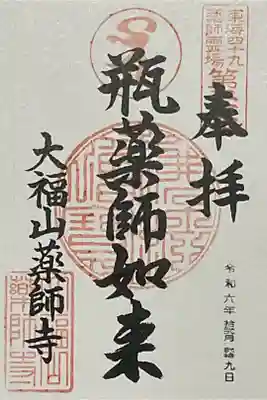 東海四十九
薬師霊場第
奉拝
令和六年拾弐月拾九日
瓶薬師如来
大福山薬師寺